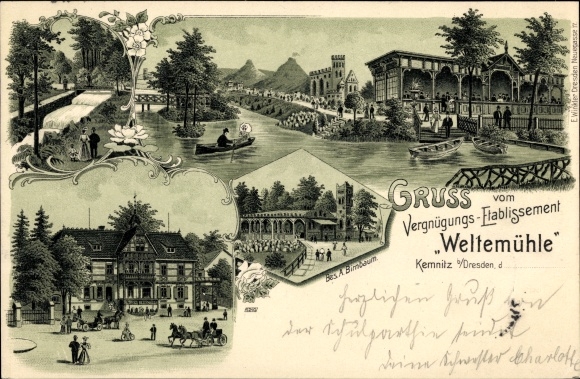 E. Walther, Dresden, Neugasse
GRUSS vom
Vergnügungs-Etablissement
"Weltemühle"
Kemnitz b/Dresden, d
Bes. A. Birnbaum.
Herzlichen Gruß von
der Schulparthie sendet
deine Schwester Charlotte